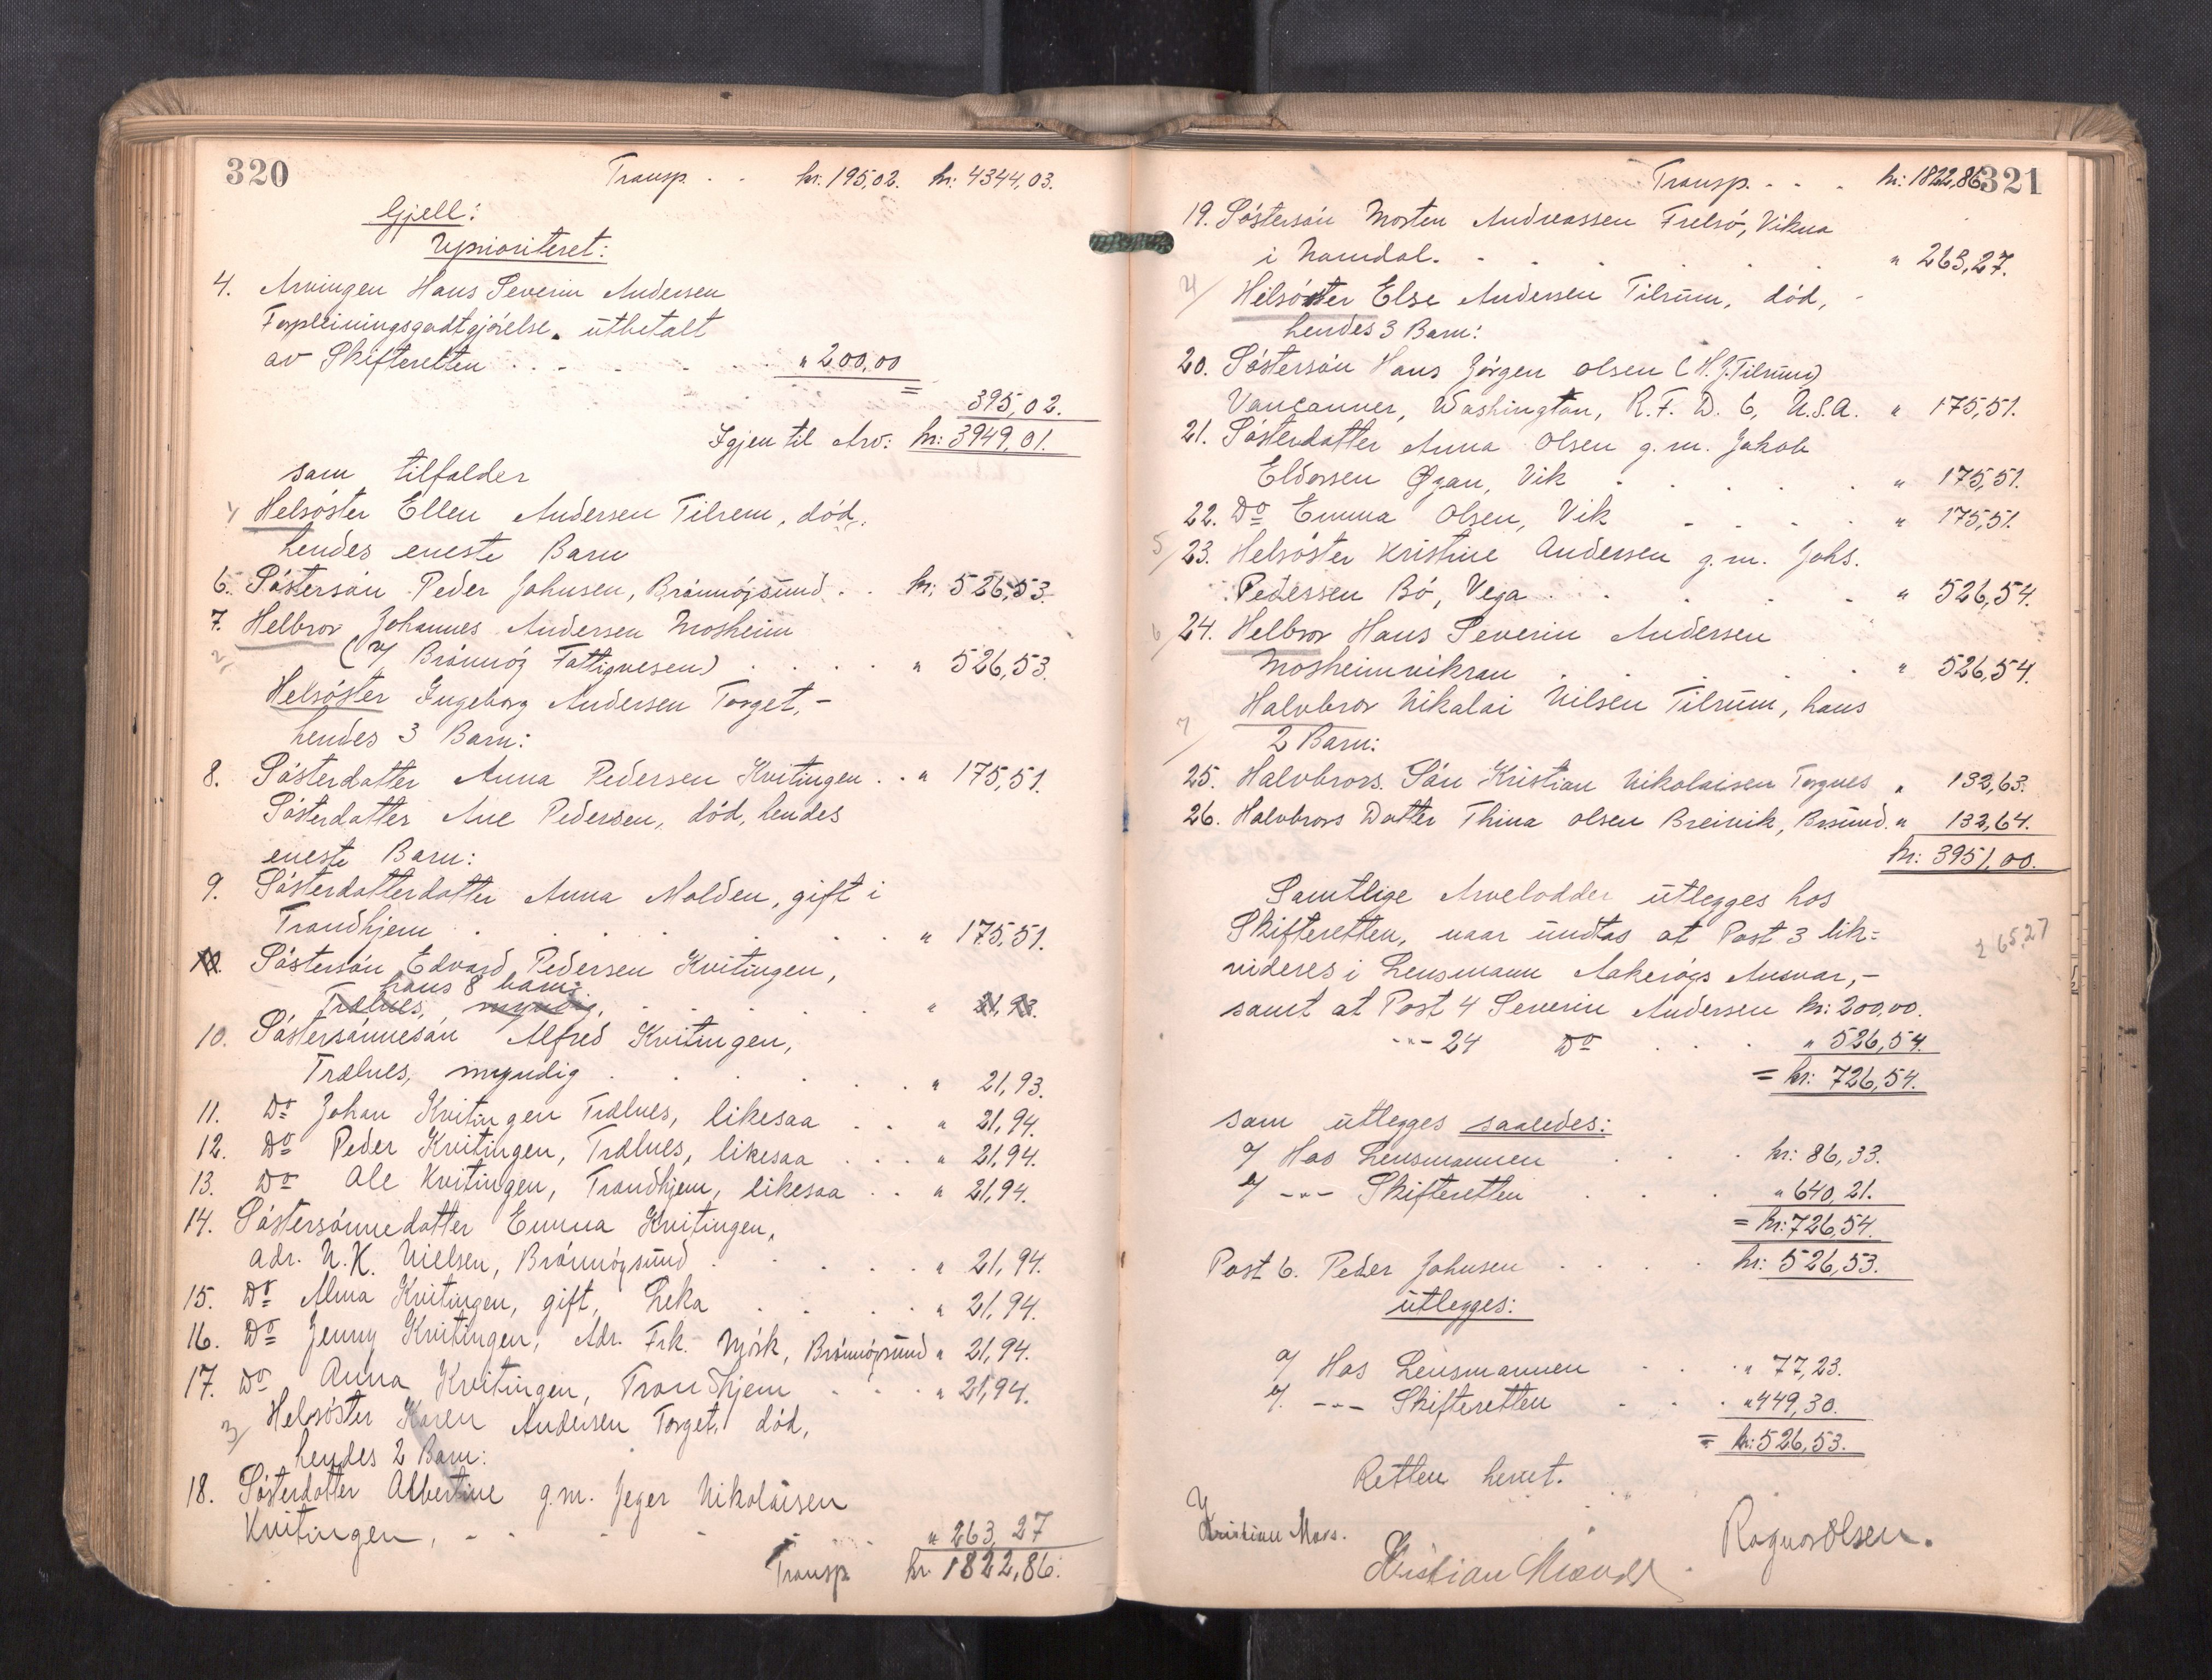 320
Transp. . . kr. 195,02. kr: 4344,03.
Gjell:
Uprioritert:
4. Arvingen Hans Severin Andersen
Forpleiningsgodtgjörelse, utbetalt
av Skifteretten . . . . . . . " 200,00
= 395,02.
Igjen til Arv: kr: 3949,01.
som tilfalder
1/ Helsöster Ellen Andersen Tilrem, död,
hendes eneste Barn
6. Söstersön Peder Johnsen, Brönnöysund . . kr: 526,53.
7. Helbror Johannes Andersen Mosheim
2/ (v/ Brönnöy Fattigvesen) . . . . " 526,53.
Helsöster Ingeborg Andersen Torget, -
hendes 3 Barn:
8. Sösterdatter Anna Pedersen Kvitingen . . " 175,51.
Sösterdatter Ane Pedersen, död, hendes
eneste Barn:
9. Sösterdatterdatter Anna Molden, gift i
Trondhjem . . . . . . . " 175,51.
10. Söstersön Edvard Pedersen Kvitingen,
hans 8 barn:
Trælnes, myndig, . . . . . " 21,93.
10. Söstersönnesön Alfred Kvitingen,
Trælnes, myndig . . . . . . " 21,93.
11. Do Johan Kvitingen Trælnes, likesaa . . " 21,94.
12. Do Peder Kvitingen, Trælnes, likesaa . . . " 21,94.
13. Do Ole Kvitingen, Trondhjem, likesaa . . " 21,94.
14. Söstersönnedatter Emma Kvitingen,
adr. N. K. Nielsen, Brönnöysund . . . . . " 21,94.
15. Do Alma Kvitingen, gift, Leka . . . . . " 21,94.
16. Do Jenny Kvitingen, Adr. Frk. Mörk, Brönnöysund " 21,94.
17. Do Anna Kvitingen, Trondhjem . . . " 21,94.
3/ Helsöster Karen Andersen Torget, död,
hendes 2 Barn:
18. Sösterdatter Albertine g.m. Jeger Nikolaisen
Kvitingen, - - - - . . " 263,27
Transp kr. 1822,86.
321
Transp. . . . kr: 1822,86
19. Söstersön Morten Andreassen Frelsö, Vikna
i Namdal. . . . . . . " 263,27.
4/ Helsöster Else Andersen Tilrum, död, -
hendes 3 Barn:
20. Söstersön Hans Jörgen Olsen (H. J. Tilrum)
Vancouver, Washington, R. F. D. 6, U.S.A. " 175,51.
21. Sösterdatter Anna Olsen g.m. Jakob
Eldorsen Øyan, Vik . . . . . " 175,51.
22. Do Emma Olsen, Vik . . . . " 175,51.
5/ 23. Helsöster Kristine Andersen g.m. Johs.
Pedersen Bö, Vega . . . . . " 526,54.
6/ 24. Helbror Hans Severin Andersen
Mosheimvikran . . . . . " 526,54.
Halvbror Nikolai Nilsen Tilrum, hans
7/ 2 Barn:
25. Halvbrors Sön Kristian Nikolaisen Torgnes " 132,63.
26. Halvbrors Datter Thina Olsen Breivik, Brsund. " 132,64.
kr: 3951,00.
Samtlige Arvelodder utlegges hos
Skifteretten, naar undtas at Post 3 lik=
265,27
videres i Lensmann Aakeröys Ansvar, -
samt at Post 4 Severin Andersen kr: 200,00.
-"- 24 Do . . . " 526,54.
= kr: 726,54.
som utlegges saaledes:
a/ Hos Lensmannen . . . kr: 86,33.
b/ -"- Skifteretten . . . " 640,21.
= kr: 726,54.
Post 6. Peder Johnsen . . . . kr: 526,53.
utlegges:
a/ Hos Lensmannen . . . " 77,23.
b/. -"- Skifteretten . . . " 449,30.
= kr: 526,53.
Retten hevet.
Kristian Mars. Ragnar Olsen.
Kristian